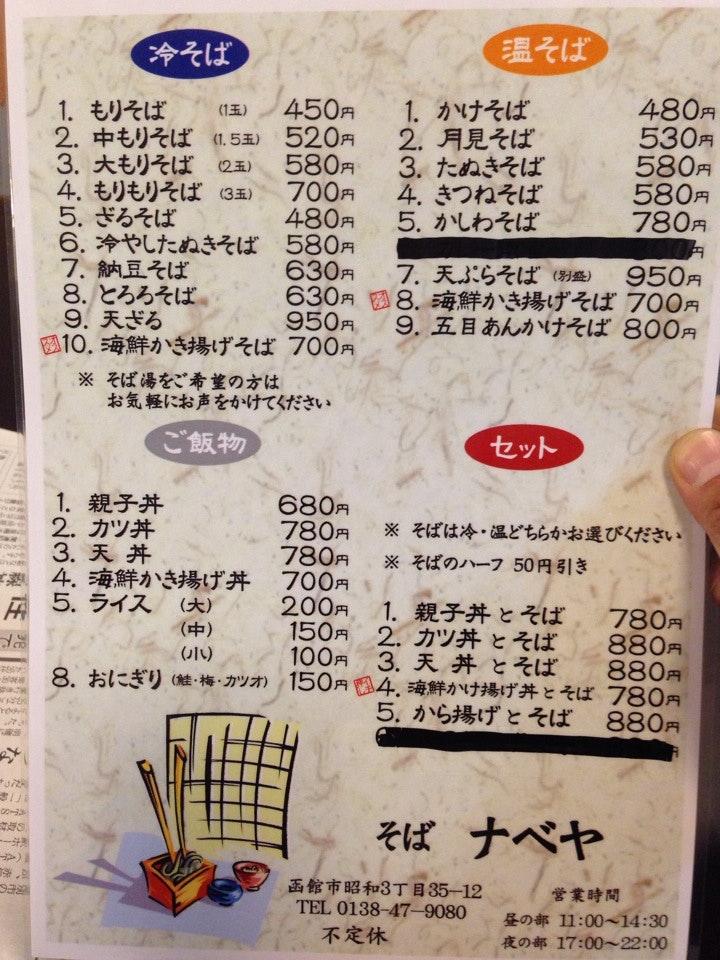 冷そば
1. もりそば (1玉) 450円
2. 中もりそば (1.5玉) 520円
3. 大もりそば (2玉) 580円
4. もりもりそば (3玉) 700円
5. ざるそば 480円
6. 冷やしたぬきそば 580円
7. 納豆そば 630円
8. とろろそば 630円
9. 天ざる 950円
10. 海鮮かき揚げそば 700円
※ そば湯をご希望の方は
お気軽にお声をかけてください
温そば
1. かけそば 480円
2. 月見そば 530円
3. たぬきそば 580円
4. きつねそば 580円
5. かしわそば 780円
7. 天ぷらそば (別盛) 950円
8. 海鮮かき揚げそば 700円
9. 五目あんかけそば 800円
ご飯物
1. 親子丼 680円
2. カツ丼 780円
3. 天 丼 780円
4. 海鮮かき揚げ丼 700円
5. ライス (大) 200円
(中) 150円
(小) 100円
8. おにぎり (鮭・梅・カツオ) 150円
セット
※ そばは冷・温どちらかお選びください
※ そばのハーフ 50円引き
1. 親子丼とそば 780円
2. カツ丼とそば 880円
3. 天 丼とそば 880円
4. 海鮮かけ揚げ丼とそば 780円
5. から揚げとそば 880円
そば ナベヤ
函館市昭和3丁目35—12
TEL 0138-47-9080
不定休
営業時間
昼の部 11:00〜14:30
夜の部 17:00〜22:00